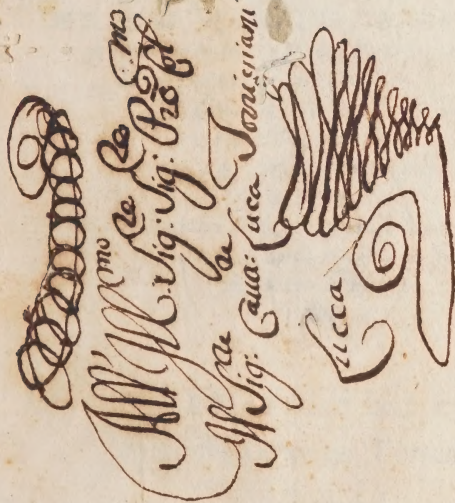 All' Ill.mo Sig.re Sig.re Pro͞n Col.mo
Il Sig.re Caua.re Luca Torrigiani
Lucca